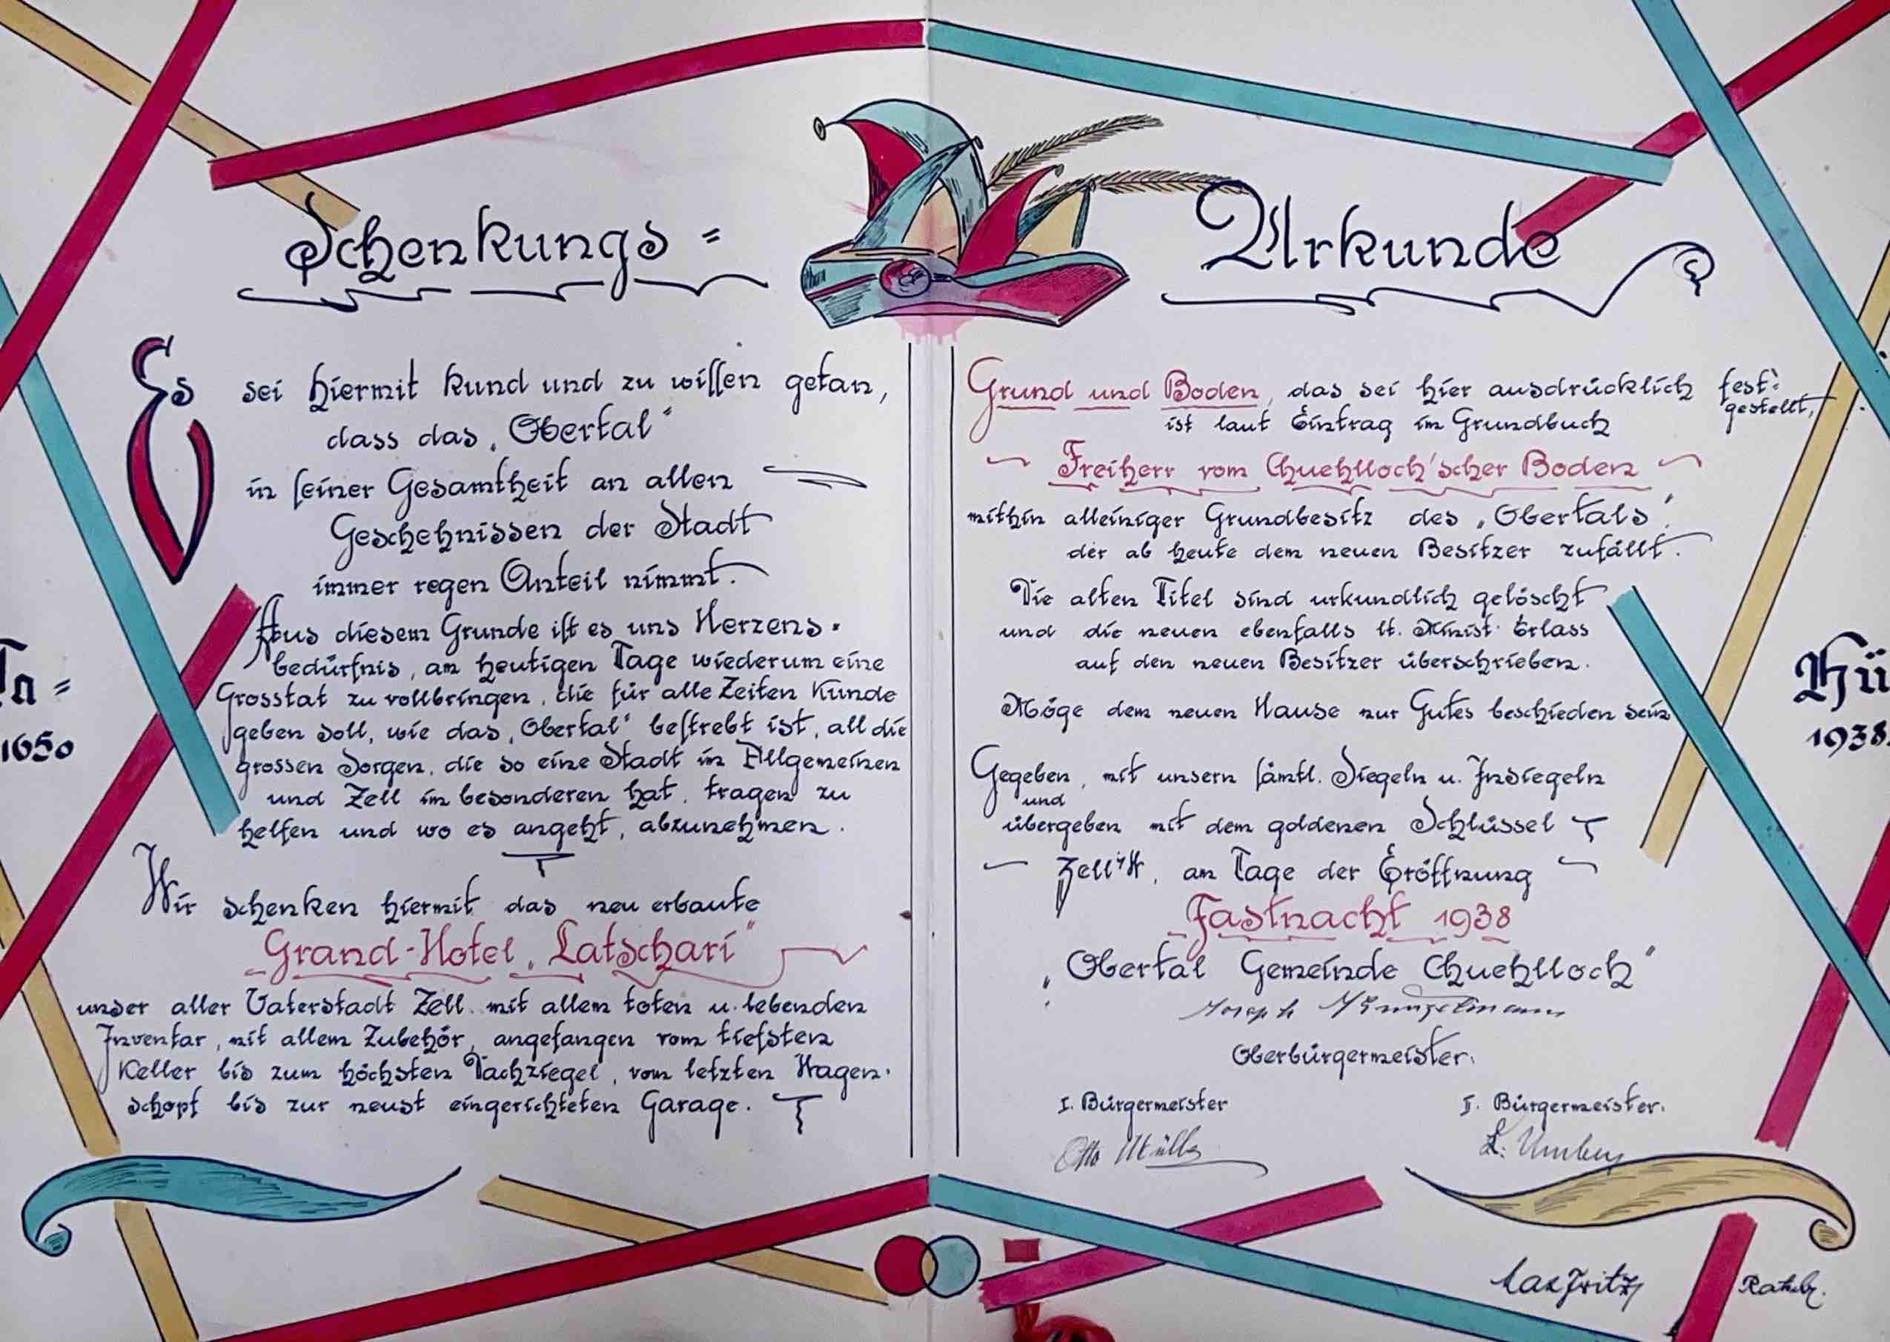 Schenkungs=
Urkunde
Es sei hiermit kund und zu wissen getan,
dass das „Obertal“
in seiner Gesamtheit an allen
Geschehnissen der Stadt
immer regen Anteil nimmt.
Aus diesem Grunde ist es uns Herzens=
bedürfnis, am heutigen Tage wiederum eine
Grosstat zu vollbringen, die für alle Zeiten Kunde
geben soll, wie das „Obertal“ bestrebt ist, all die
grossen Sorgen, die so eine Stadt im Allgemeinen
und Zell im besonderen hat, tragen zu
helfen und wo es angeht, abzunehmen.
Wir schenken hiermit das neu erbaute
Grand-Hotel „Latschari“
unser aller Vaterstadt Zell mit allem toten u. lebenden
Inventar, mit allem Zubehör, angefangen vom tiefsten
Keller bis zum höchsten Dachziegel, vom letzten Wagen=
schopf bis zur neust eingerichteten Garage.
1650
Grund und Boden, das sei hier ausdrücklich fest=
gestellt,
ist laut Eintrag im Grundbuch
Freiherr vom Chuehlloch'scher Boden
mithin alleiniger Grundbesitz des „Obertals“
der ab heute dem neuen Besitzer zufällt.
Die alten Titel sind urkundlich gelöscht
und die neuen ebenfalls lt. Minist. Erlass
auf den neuen Besitzer überschrieben.
Möge dem neuen Hause nur Gutes beschieden sein
Gegeben, mit unsern sämtl. Siegeln u. Insiegeln
und
übergeben mit dem goldenen Schlüssel
Zell i/W, am Tage der Eröffnung
Fastnacht 1938
„Obertal Gemeinde Chuehlloch“
Joseph
Oberbürgermeister.
I. Bürgermeister
II. Bürgermeister.
Otto Müller
Hü
1938
Max Fritz